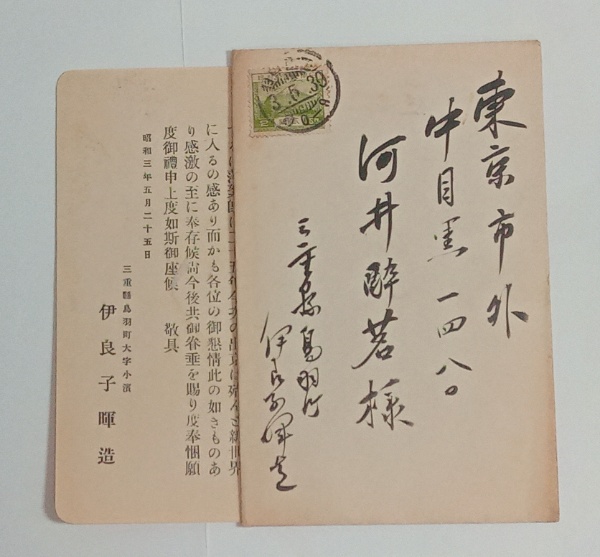 東京市外
中目黒一四八〇
河井酔茗様
三重縣鳥羽町
伊良子暉造
に入るの感あり而かも各位の御懇情此の如きものあ
り感激の至に奉存候尚今後共御眷垂を賜り度奉悃願
度御禮申上度如斯御座候 敬具
昭和三年五月二十五日
三重縣鳥羽町大字小濱
伊良子暉造
3.5.30